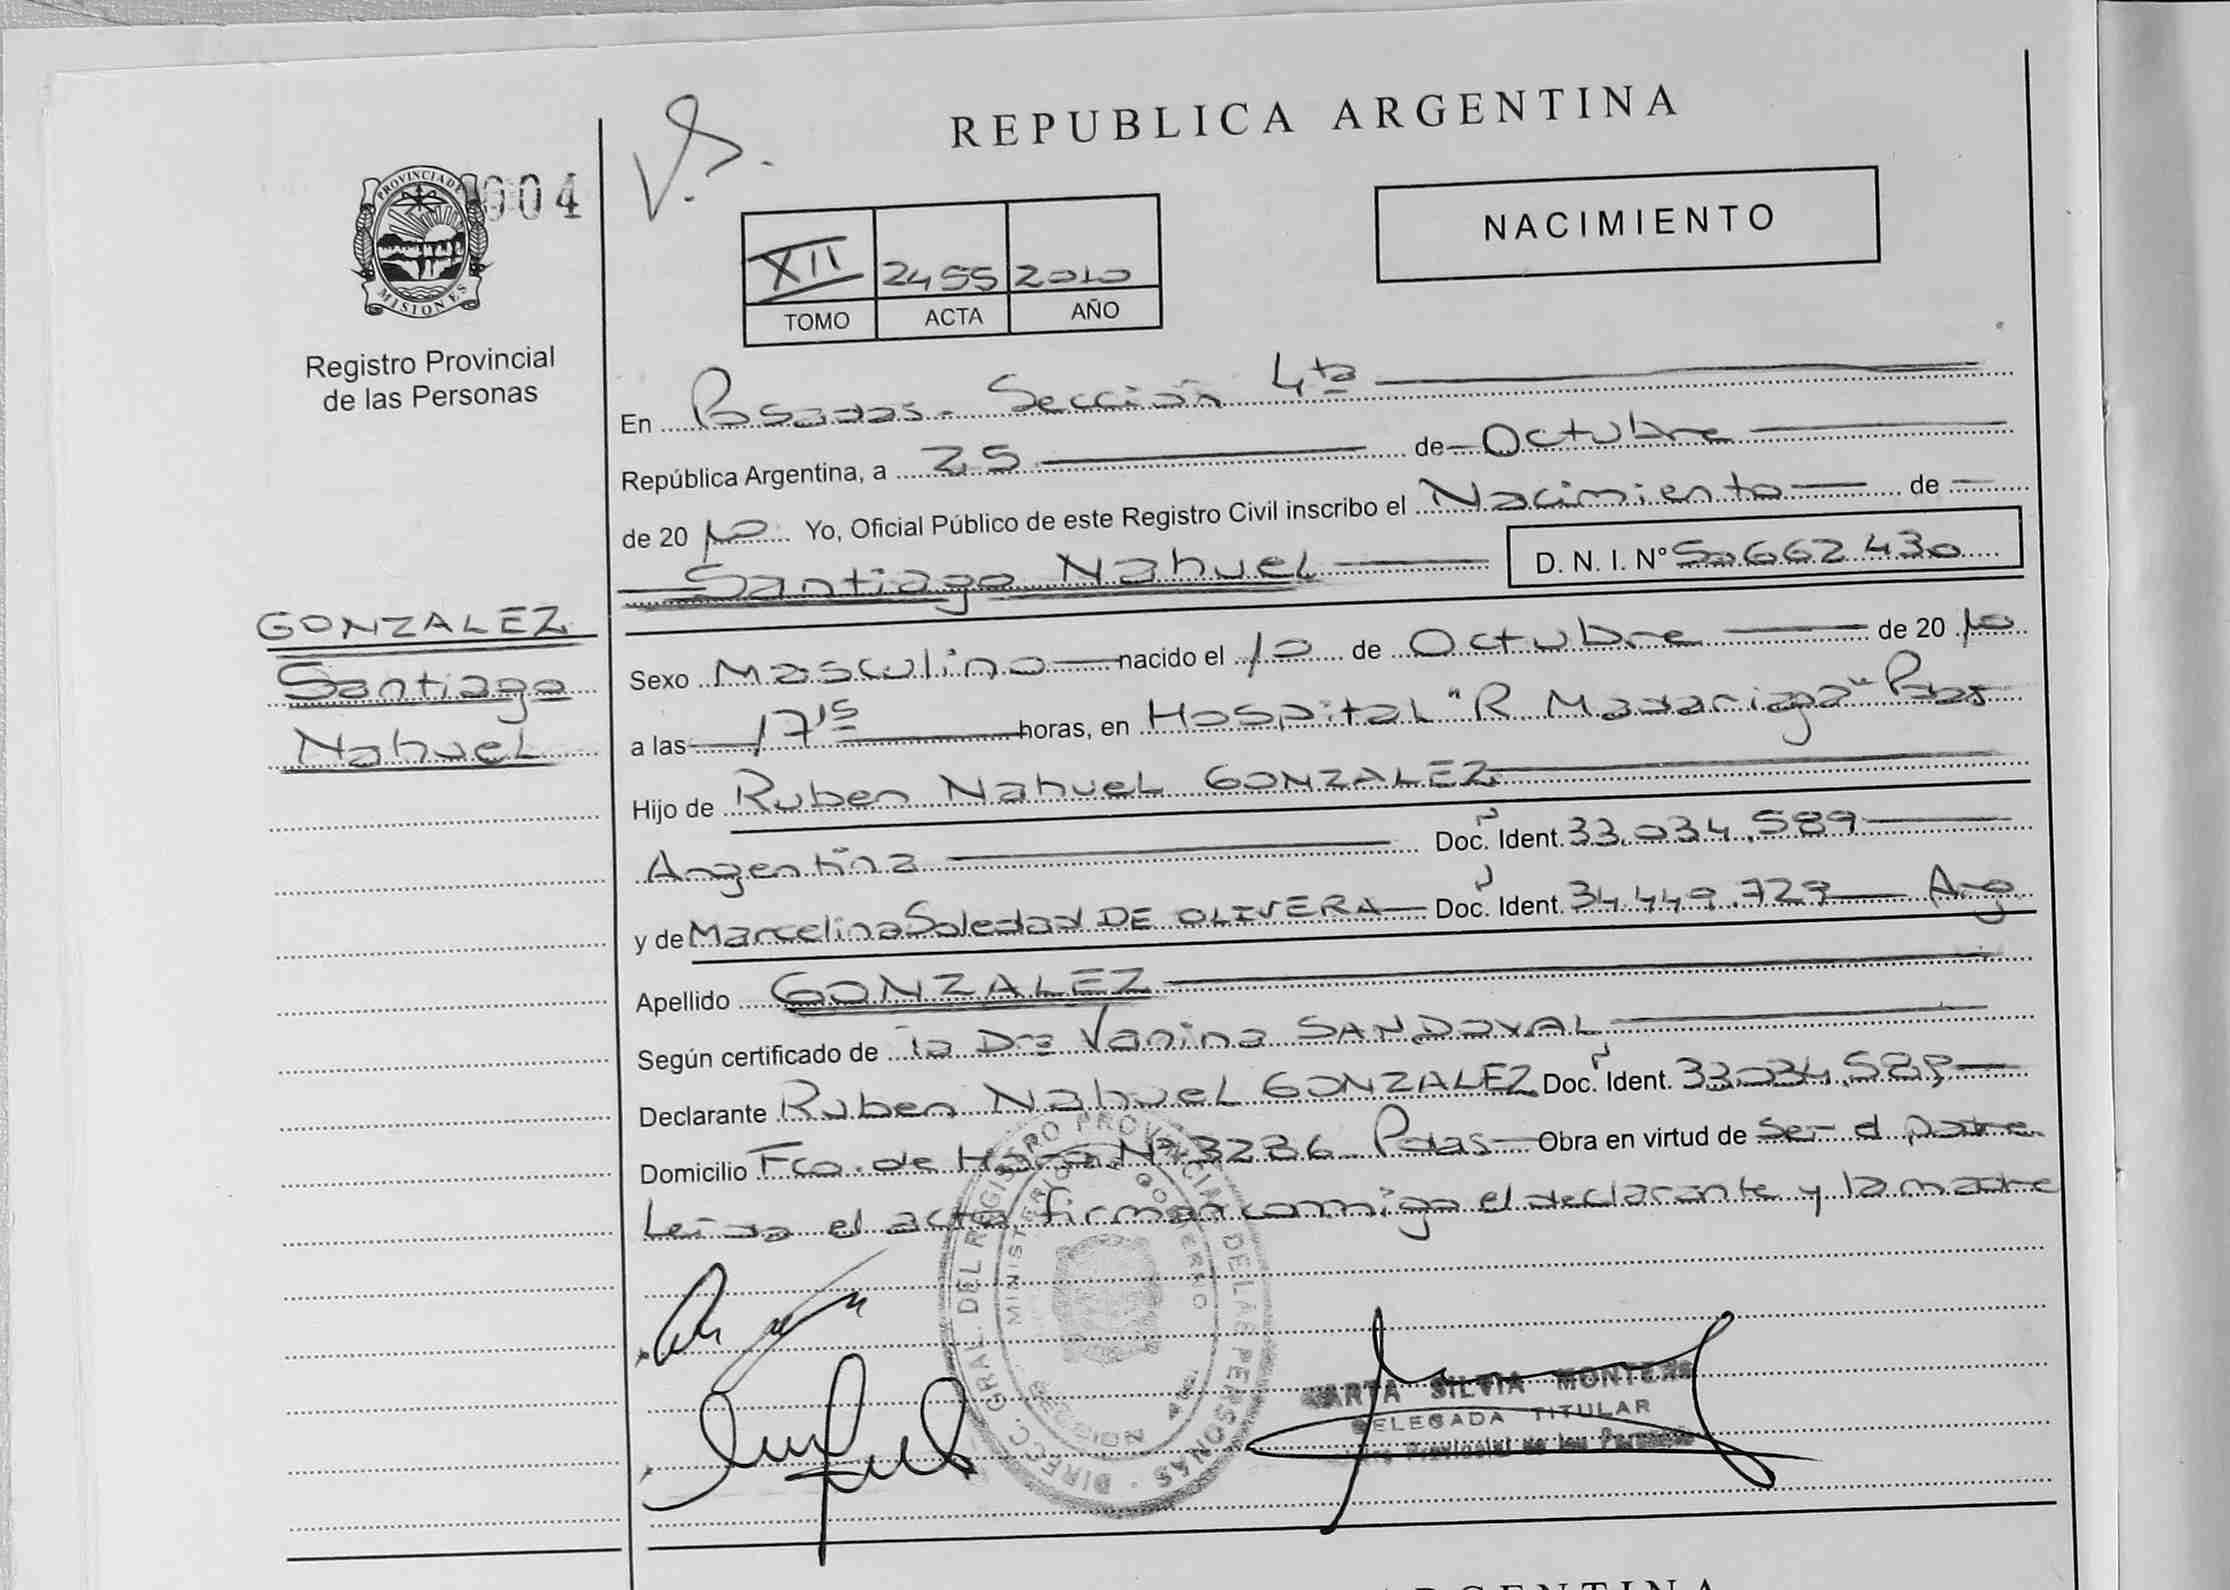 REPUBLICA ARGENTINA
V.S.
004
PROVINCIA DE
MISIONES
Registro Provincial
de las Personas
NACIMIENTO
XII 2455 2010
TOMO ACTA AÑO
En Posadas - Sección 4ta
República Argentina, a 25 de Octubre
de 2010 Yo, Oficial Público de este Registro Civil inscribo el Nacimiento de
Santiago Nahuel D. N. I. Nº 50662430
GONZALEZ
Santiago
Nahuel
Sexo Masculino nacido el 10 de Octubre de 2010
a las 17 15 horas, en Hospital "R Madariaga" Pdas
Hijo de Ruben Nahuel GONZALEZ
Argentina Doc. Ident. 33.034.589
y de Marcelina Soledad DE OLIVERA Doc. Ident. 34.449.729 Arg
Apellido GONZALEZ
Según certificado de la Dra Vanina SANDOVAL
Declarante Ruben Nahuel GONZALEZ Doc. Ident. 33.034.589
Domicilio Fco. de Haro Nº 3286 Pdas Obra en virtud de ser el padre
Leída el acta, firman conmigo el declarante y la madre
DIRECC. GRAL. DEL REGISTRO PROVINCIAL DE LAS PERSONAS
MINISTERIO DE GOBIERNO
MARTA SILVIA MONTERO
DELEGADA TITULAR
Provincial de las Personas
ARGENTINA